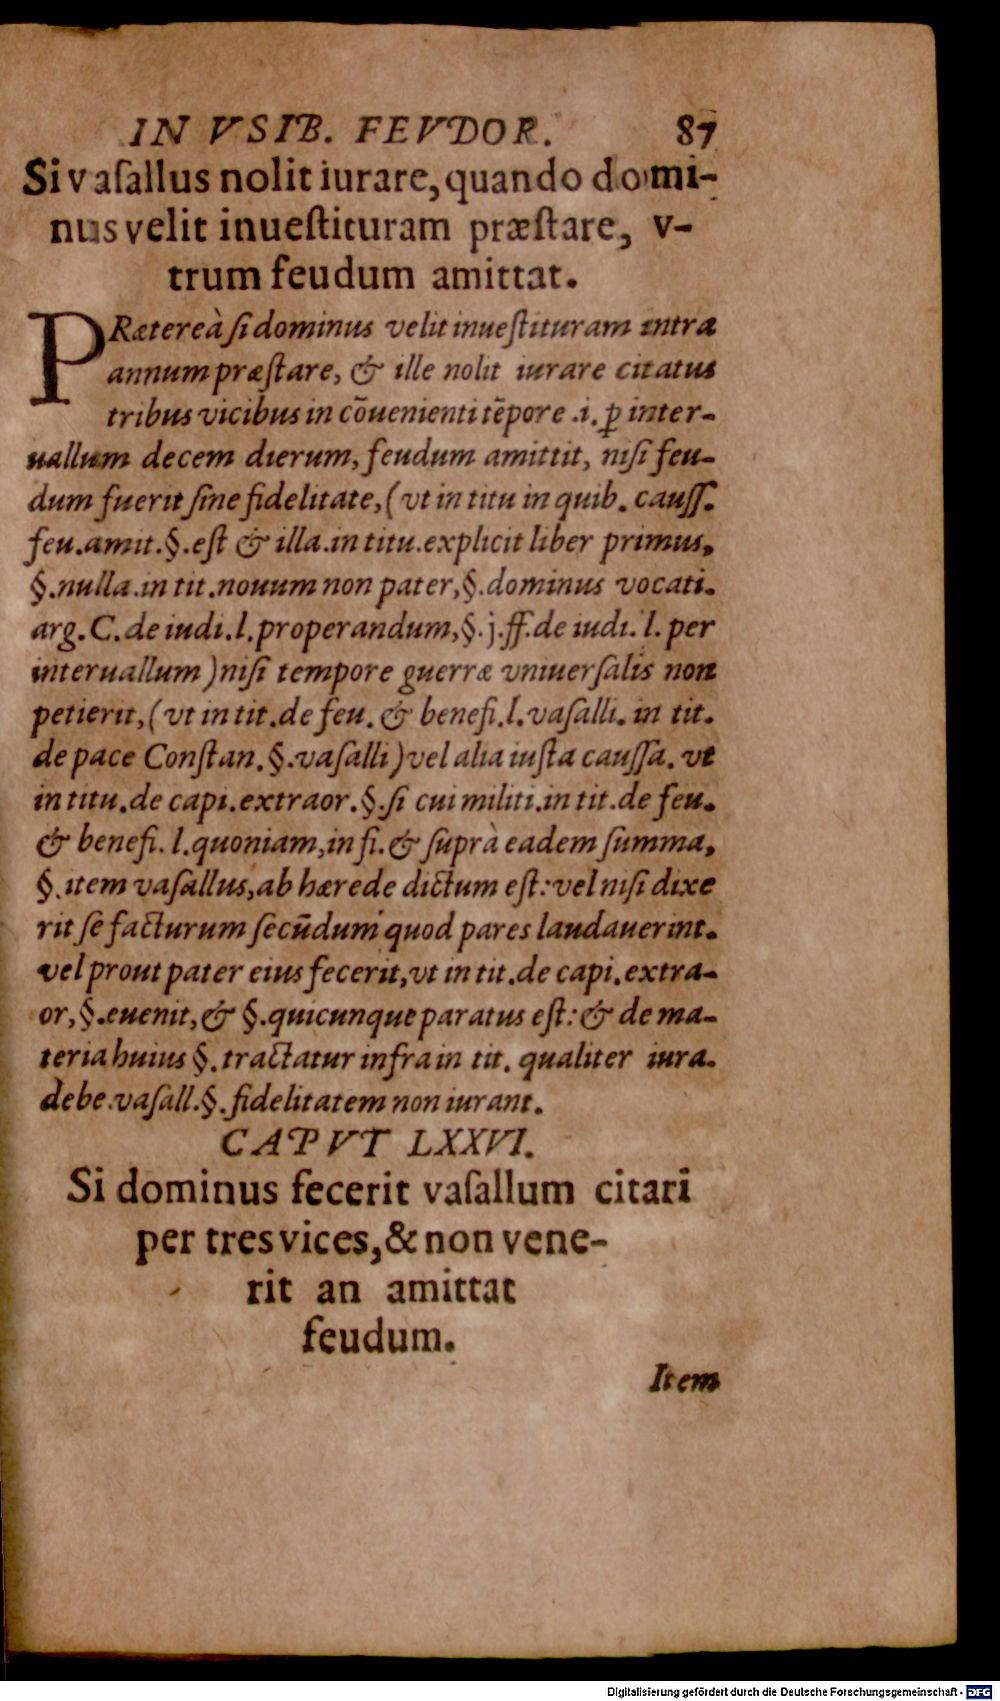 IN VSIB. FEVDOR. 87
Si vaſallus nolit iurare, quando domi-
nus velit inueſtituram præſtare, v-
trum feudum amittat.
PRætereà ſi dominus velit inueſtituram intra
annum præſtare, & ille nolit iurare citatus
tribus vicibus in cōuenienti tēpore .i. ꝑ inter-
uallum decem dierum, feudum amittit, niſi feu-
dum fuerit ſine fidelitate, (vt in titu in quib. cauſſ.
feu. amit. §. eſt & illa. in titu. explicit liber primus,
§. nulla. in tit. nouum non pater, §. dominus vocati.
arg. C. de iudi. l. properandum, §. j. ff. de iudi. l. per
interuallum ) niſi tempore guerræ vniuerſalis non
petierit, (vt in tit. de feu. & benefi. l. vaſalli. in tit.
de pace Conſtan. §. vaſalli ) vel alia iuſta cauſſa. vt
in titu. de capi. extraor. §. ſi cui militi. in tit. de feu.
& benefi. l. quoniam, in fi. & ſuprà eadem ſumma,
§. item vaſallus, ab hærede dictum eſt: vel niſi dixe
rit ſe facturum ſecūdum quod pares laudauerint.
vel prout pater eius fecerit, vt in tit. de capi. extra-
or, §. euenit, & §. quicunque paratus eſt: & de ma-
teria huius §. tractatur infra in tit. qualiter iura.
debe. vaſall. §. fidelitatem non iurant.
CAPVT LXXVI.
Si dominus fecerit vaſallum citari
per tres vices, & non vene-
rit an amittat
feudum.
Item
Digitalisierung gefördert durch die Deutsche Forschungsgemeinschaft - DFG